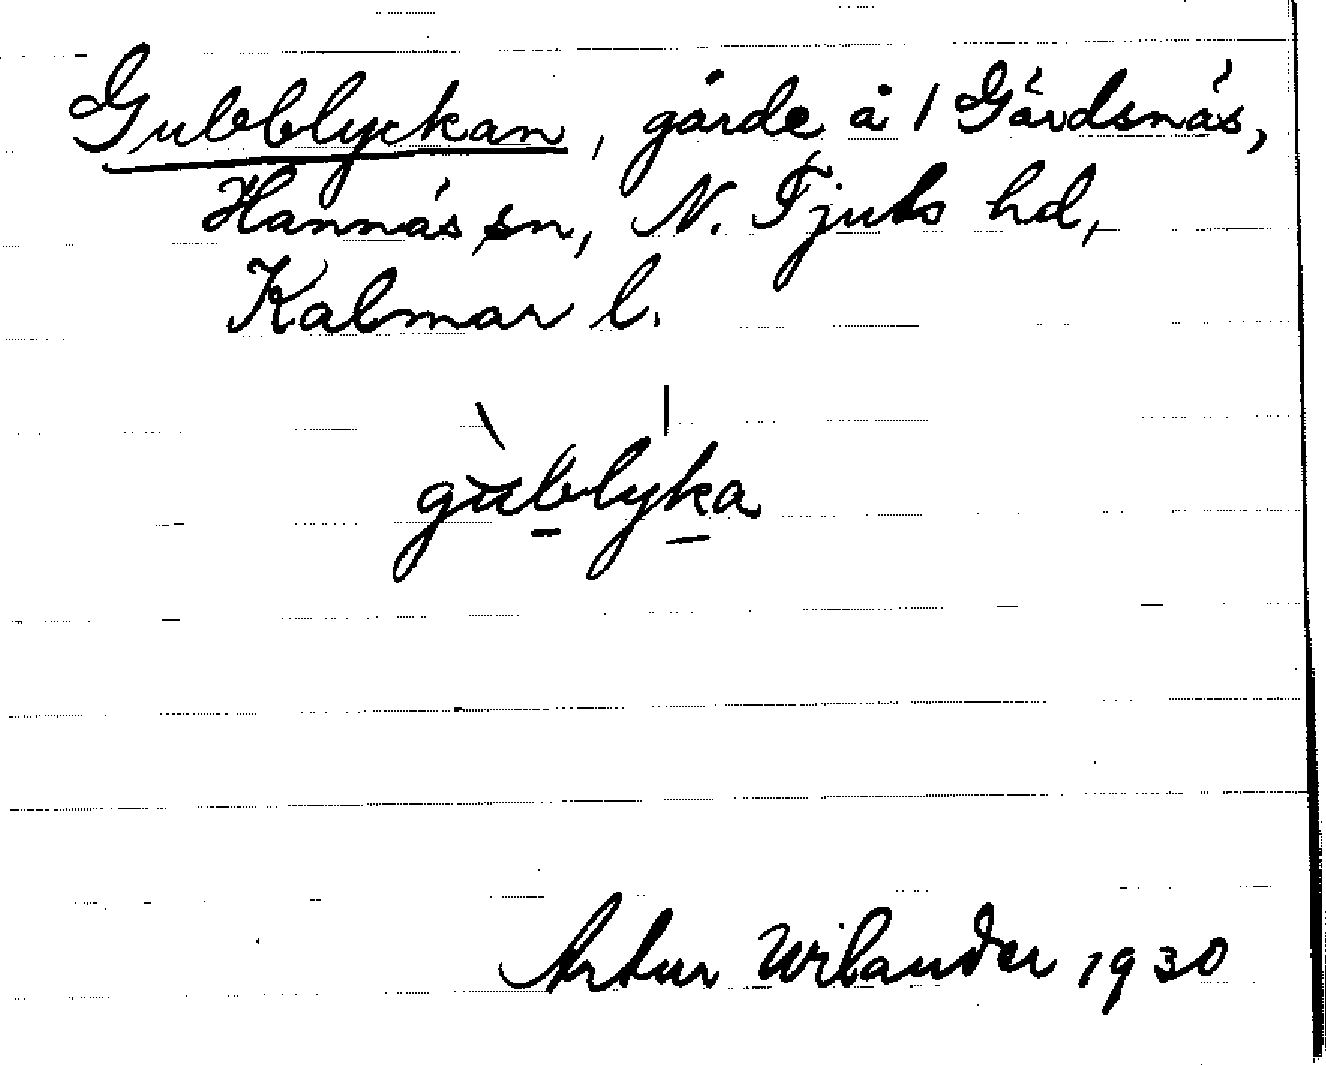 Gubblyckan, gärde å 1 Gärdsnäs,
Hannäs sn, N. Tjusts hd,
Kalmar l.
gùblyka
Artur Wilander 1930